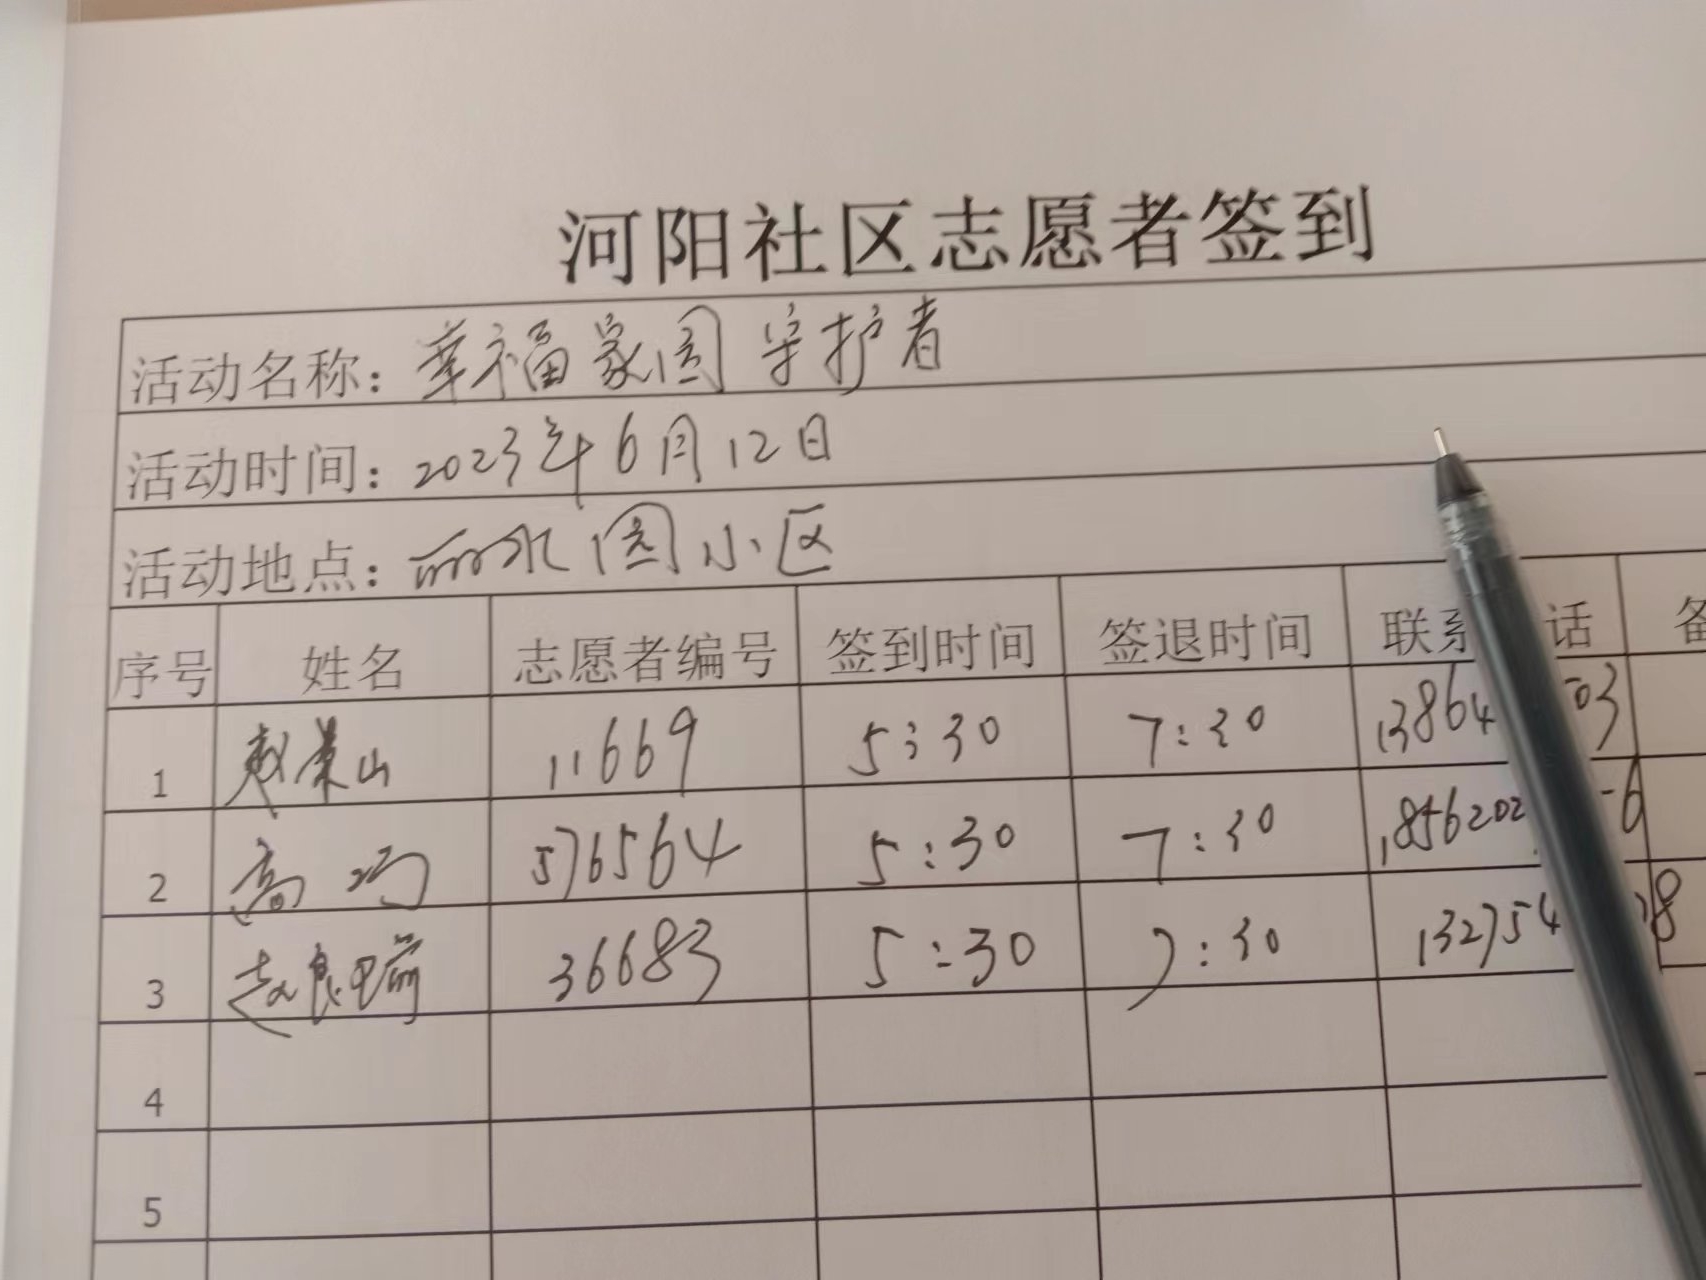 河阳社区志愿者签到
活动名称：幸福家园守护者
活动时间：2023年6月12日
活动地点：丽水园小区
序号 姓名 志愿者编号 签到时间 签退时间 联系 话 备
1 赵景山 11669 5:30 7:30 13864 03
2 高巧 576564 5:30 7:30 1856202 6
3 赵良 36683 5:30 7:30 132754 8
4
5